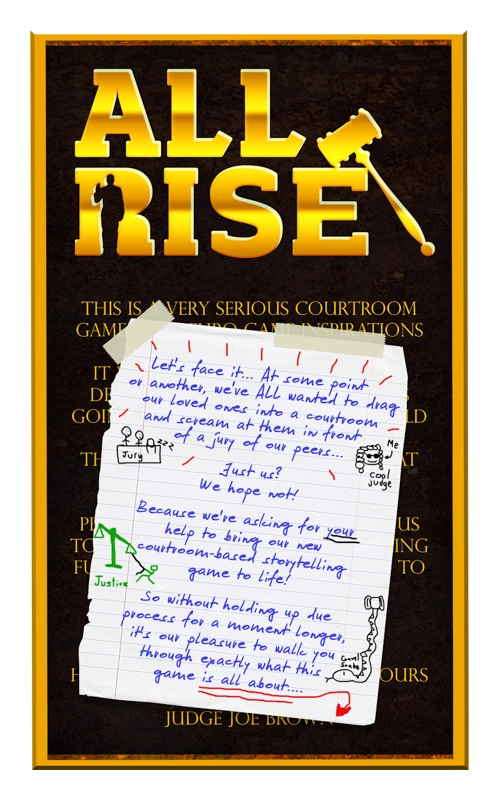 ALL
RISE
THIS IS A VERY SERIOUS COURTROOM
GAME EURO GAME INSPIRATIONS
Let's face it... At some point
or another, we've All wanted to drag
our loved ones into a courtroom
and scream at them in front
of a jury of our peers...
zzz
Jury
Me
Cool
judge
Just us?
We hope not!
Because we're asking for your
help to bring our new
courtroom-based storytelling
game to life!
Justice
So without holding up due
process for a moment longer,
it's our pleasure to walk you
through exactly what this
game is all about....
Gavel
Snake
JUDGE JOE BROWN